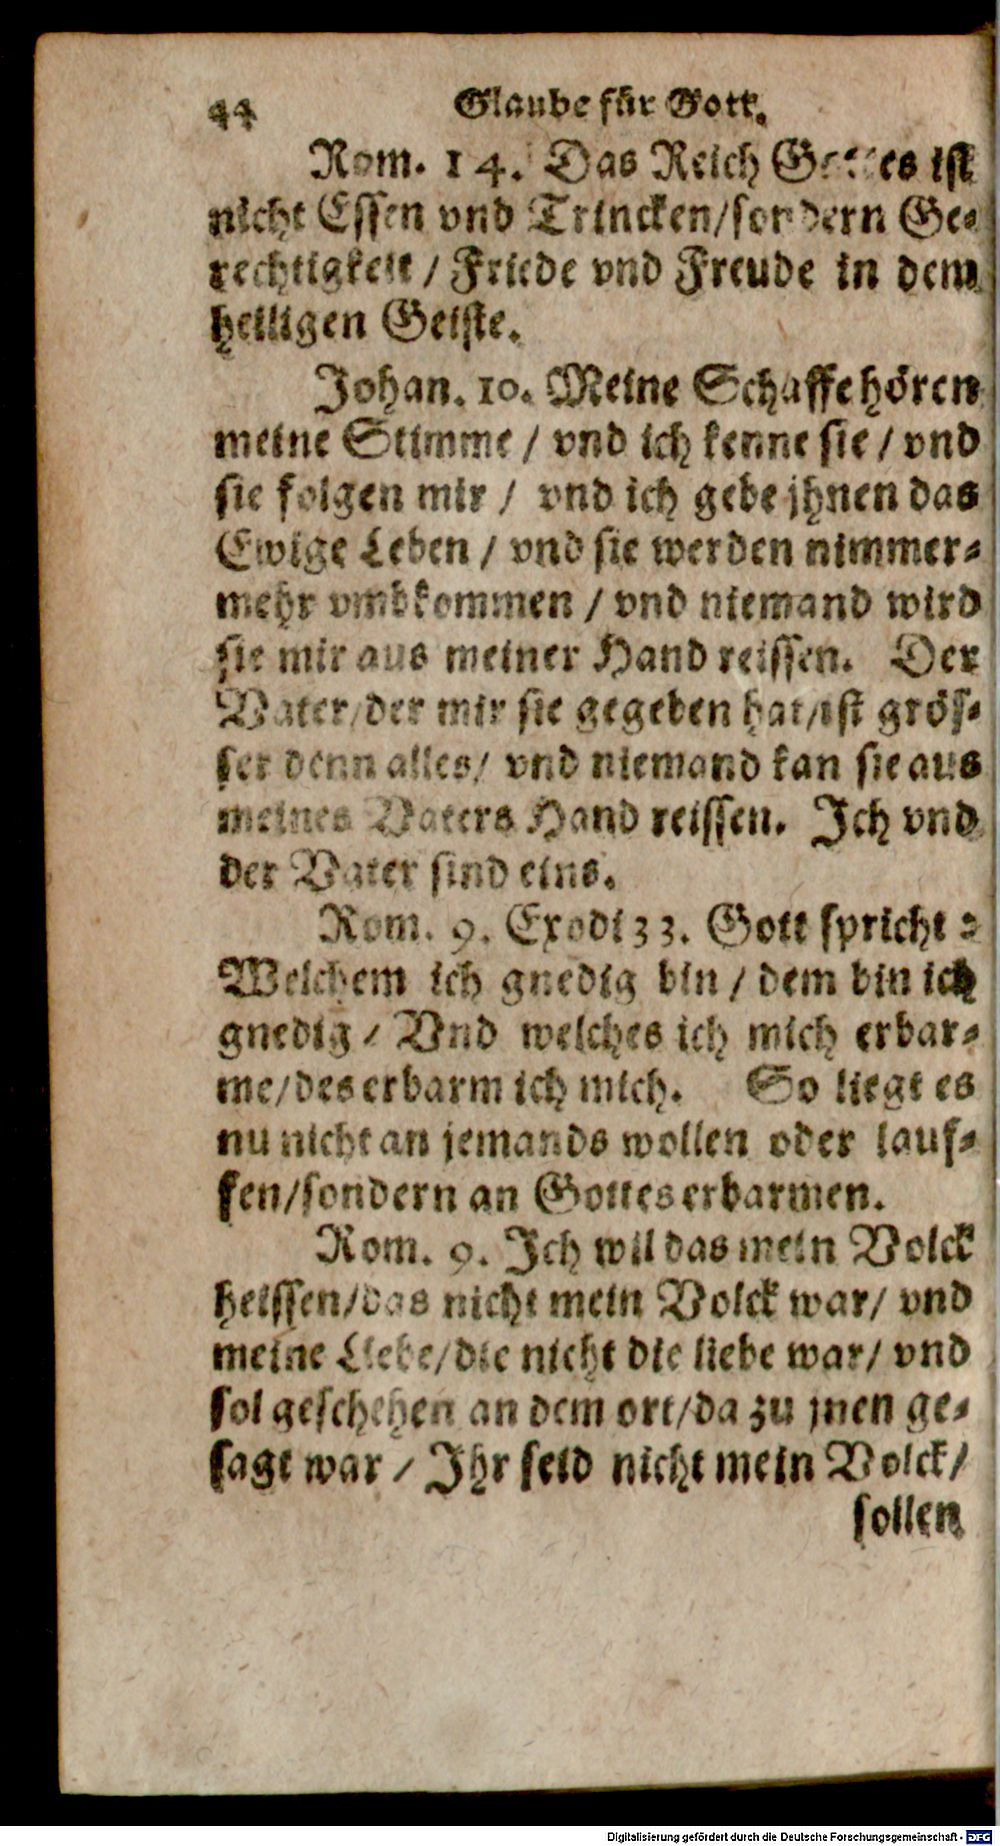 44 Glaube für Gott.
Rom. 14. Das Reich Gottes ist
nicht Essen vnd Trincken/sondern Ge-
rechtigkeit / Friede vnd Freude in dem
heiligen Geiste.
Johan. 10. Meine Schaffe hören
meine Stimme / vnd ich kenne sie / vnd
sie folgen mir / vnd ich gebe jhnen das
Ewige Leben / vnd sie werden nimmer-
mehr vmbkommen / vnd niemand wird
sie mir aus meiner Hand reissen. Der
Vater/der mir sie gegeben hat/ist grös-
ser denn alles/ vnd niemand kan sie aus
meines Vaters Hand reissen. Ich vnd
der Vater sind eins.
Rom. 9. Exodi 33. Gott spricht :
Welchem ich gnedig bin / dem bin ich
gnedig / Vnd welches ich mich erbar-
me/des erbarm ich mich. So liegt es
nu nicht an jemands wollen oder lauf-
fen/sondern an Gottes erbarmen.
Rom. 9. Ich wil das mein Volck
heissen/das nicht mein Volck war/ vnd
meine Liebe/die nicht die liebe war/ vnd
sol geschehen an dem ort/da zu jnen ge-
sagt war / Ihr seid nicht mein Volck/
sollen
Digitalisierung gefördert durch die Deutsche Forschungsgemeinschaft - DFG